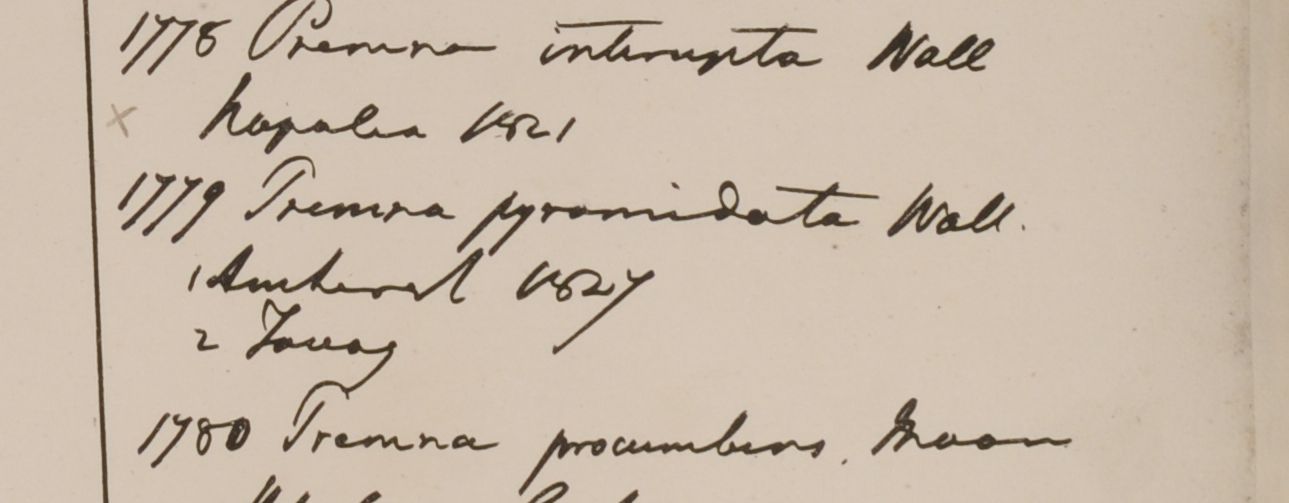 1778 Premna interrupta Wall
× Napalia 1821
1779 Premna pyramidata Wall.
1 Amherst 1827
2 Tavoy
1780 Premna procumbens. Moon